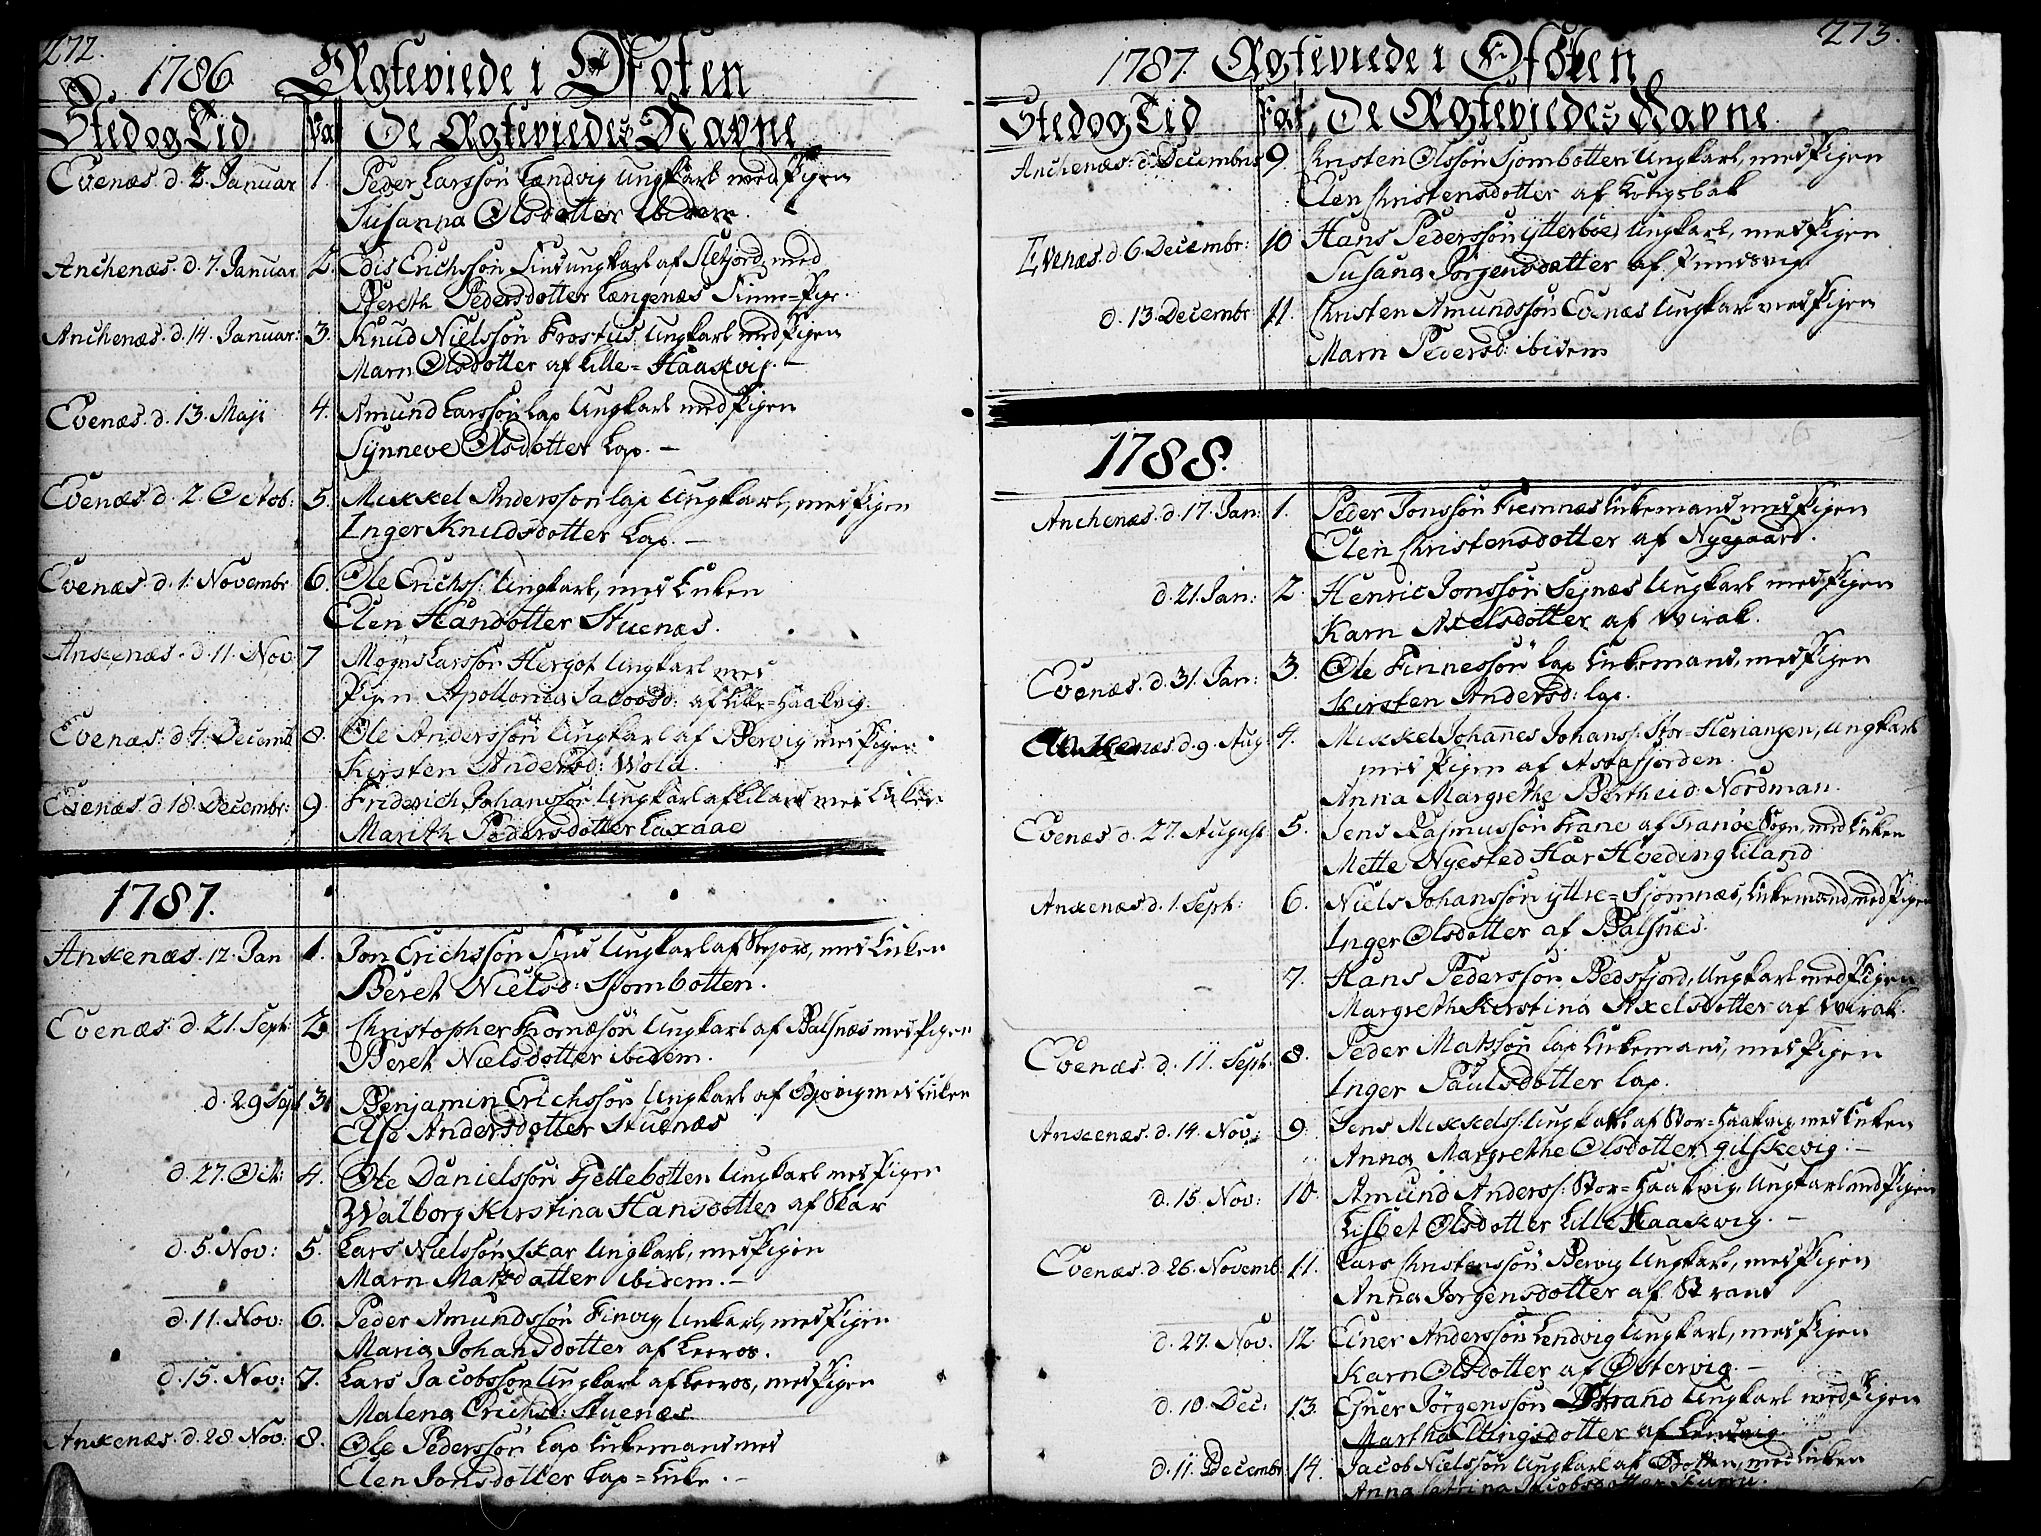 272.
1786 Ægteviede i Ofoten
Sted og Tid Pa De Ægteviedes Navne
Evenæs. d. 3. Januar 1. Peder Larssøn Lændvig Ungkarl med Pigen
Susanna Olsdotter ibidem.
Anchenæs. d. 7. Januar 2. Edis Erichssøn Find ungkarl af Sletjord med
Bereth Pedersdotter Længenæs Finne=Pige.
Anchenæs. d. 14. Januar: 3. Knud Nielssøn Frostus Ungkarl med Pigen
Marn Olsdotter af Lille=Haakvig. —
Evenæs. d. 13. Maji 4. Amund Larssøn Lap Ungkarl med Pigen
Synneve Olsdotter Lap. —
Evenæs. d. 2. Octob: 5. Mikkel Anderssøn Lap Ungkarl, med Pigen
Inger Knudsdotter Lap. —
Evenæs. d. 1. Novembr 6. Ole Erichss: Ungkarl, med Enken
Elen Handotter Stuenæs.
Ankenæs. d. 11. Nov: 7 Mogns Larssøn Hergot Ungkarl med
Pigen Apollonia Jacobsd: af Lille=Haakvig.
Evenæs. d. 4. Decemb 8. Ole Anderssøn Ungkarl af Bervig med Pigen
Kirsten Andersd: Wold.
Evenæs. d 18. Decembr: 9. Friderich Johanssøn Ungkarl af Liland med Enken
Marith Pedersdotter Laxaae
1787.
Ankenæs. 12. Jan 1. Jon Erichssøn Find Ungkarl af Skjord, med Enken
Beret Nielsd: Sjombotten.
Evenæs. d. 21. Sept: 2. Christopher Thomæsøn Ungkarl af Balsnæs med Pigen
Beret Nielsdotter ibidem.
d. 29 Sept 3. Benjamin Erichssøn Ungkarl af Osvig med Enken
Else Andersdotter Stuenæs
d. 27. Oct: 4. Ole Danielssøn Fjellebotten Ungkarl med Pigen
Walborg Kirstina Hansdotter af Skar
d. 5. Nov: 5. Lars Nielssøn Skar Ungkarl, med Pigen
Marn Matsdatter ibidem. —
d. 11. Nov: 6. Peder Amundssøn Finvig Unkarl, med Pigen
Maria Johansdotter af Leeros.
d. 15. Nov: 7. Lars Jacobssøn Ungkarl af Leeros, med Pigen
Malena Erichsd: Stuenæs
Ankenæs. d. 28. Nov: 8. Ole Pederssøn Lap Enkemand med
Elen Jonsdotter Lap=Enke. —
273.
1787. Ægteviede i Ofoten
Sted og Tid Par, De Ægteviedes Navne
Anchenæs: d. Decembris 9. Christen Olssøn Sjombotten Ungkarl, med Pigen
Elen Christensdotter af Kongsbak
Evenæs. d 6. Decembr: 10 Hans Pederssøn Ytterbøe, Ungkarl, med Pigen
Susana Jørgensdotter af Pundsvig.
d. 13. Decembr 11. Christen Amundssøn Evenæs Ungkarl med Pigen
Marn Pedersd: ibidem
1788.
Anchenæs. d. 17. Jan: 1. Peder Jonssøn Fremnæs Enkemand med Pigen
Elen Christensdotter af Nygaard.
d. 21. Jan: 2. Henric Jonssøn Sejnæs Ungkarl med Pigen
Karn Axelsdotter af Wirak.
Evenæs. d. 31. Jan: 3. Ole Finnessøn Lap Enkemand, med Pigen
Kirsten Andersd: Lap.
Ankenæs d. 9. Aug 4. Mikkel Johannes Johanss. Stor=Heriangen, Ungkarl
med Pigen af Astafjorden
Anna Margrethe Bertheid: Nordman.
Evenæs d. 27. August 5. Jens Rasmussøn Frane af Tranøe Sogn, med Enken
Mette Nysted Har Hveding Liland
Ankenæs d. 1. Sept: 6. Niels Johanssøn Yttre=Sjomnæs, Enkemand med Pigen
Inger Olsdotter af Balsnæs.
7. Hans Pederssøn Bedsfjord, Ungkarl med Pigen
Margreth Kerstina Axelsdotter af Wirak.
Evenæs. d. 11. Sept: 8. Peder Matssøn Lap Enkemand, med Pigen
Inger Paulsdotter Lap.
Ankenæs. d. 14. Nov: 9. Jens Mikkelss: Ungkarl af Stor=Haakvig med Enken
Anna Margrethe Olsdotter Gilskevig. —
d. 15. Nov: 10. Amund Anderss: Stor=Haakvig, Ungkarl med Pigen
Lisbet Olsdotter Lille Haakvig. —
Evenæs. d 26. Novemb: 11. Lars Christenssøn Bervig Ungkarl, med Pigen
Anna Jørgensdotter af Strand
d. 27. Nov. 12 Einer Anderssøn Lendvig Ungkarl, med Pigen
Karn Olsdotter af Østervig. —
d. 10. Dec: 13. Ejner Jørgenssøn Strand Ungkarl med Pigen
Martha Ellingsdotter af Lendvig.
d. 11. Decembr 14. Jacob Nielssøn Ungkarl af Botten, med Enken
Anna Catrina Jacobsdotter